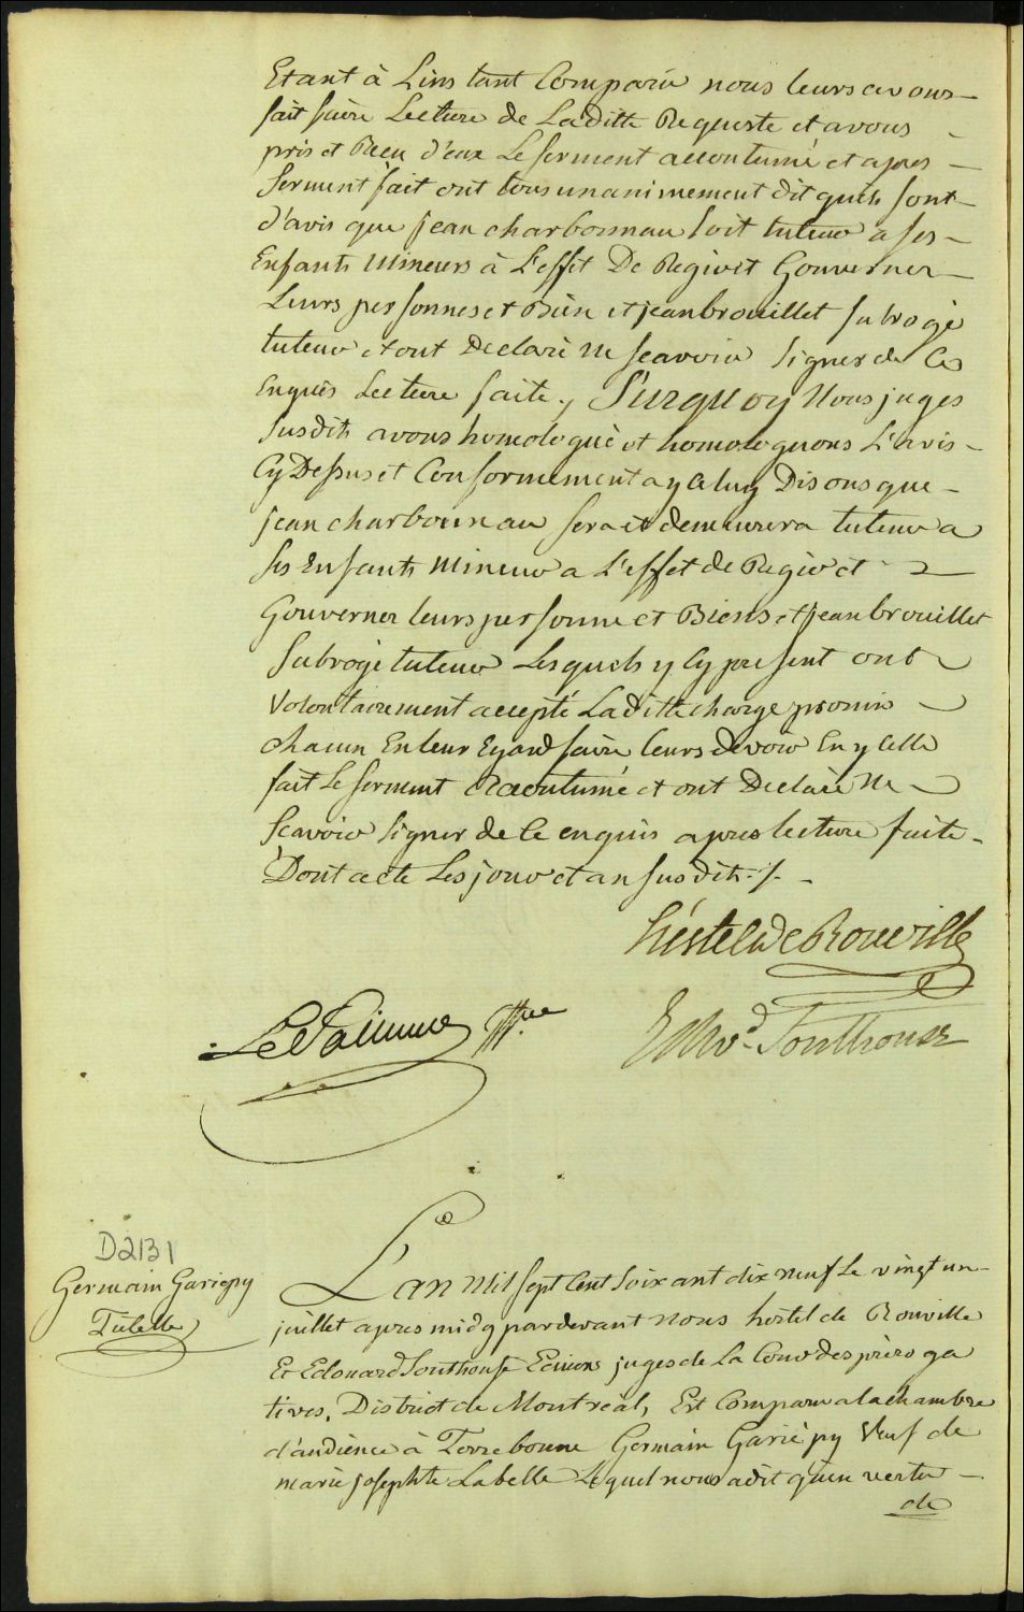 Etant à Lins tant Comparu nous leurs avons
fait faire Lecture de Laditte Requeste et avons
pris et Receu d'eux Le serment accoutumé et apres
Serment fait ont tous unanimement dit quils sont
d'avis que jean charbonnau soit tuteur a ses
Enfants Mineurs à L'effet De Regir et Gouverner
Leurs personnes et Bien et jean brouillet subrogé
tuteur et ont Declaré Ne scavoir signer de Ce
Enquis Lecture faite ./ Surquoy Nous juges
susdits avons homologué et homologuons L'avis
Cy Dessus et Conformement a yceluy Disons que
jean charbonneau sera et demeurera tuteur a
ses Enfants Mineur a L'effet de Regir et
Gouverner leurs personne et Biens et jean brouillet
subrogé tuteur Lesquels y Cy present ont
Volontairement accepté Laditte charge promis
chacun En leur Egard faire leurs devoir En y Celle
fait Le serment accoutumé et ont Declaré Ne
Scavoir signer de Ce enquis apres lecture faite
Dont acte Les jour et an susdits ./.
hertel de Rouville
LePalieur Gffier
Edwd. Southouse
D2131
Germain Gariepy
Tutelle
L'an Mil sept Cent soixant dix neuf Le vingt un
juillet apres midy pardevant Nous hertel de Rouville
Et Edouard Southouse Ecuiers juges de La Cour des prèroga
tives, District de Montreal, Est Comparu a la chambre
d'audience à Terrebonne Germain Gariépy Veuf de
marie josephte Labelle Lequel nous a dit qu'en vertu
de